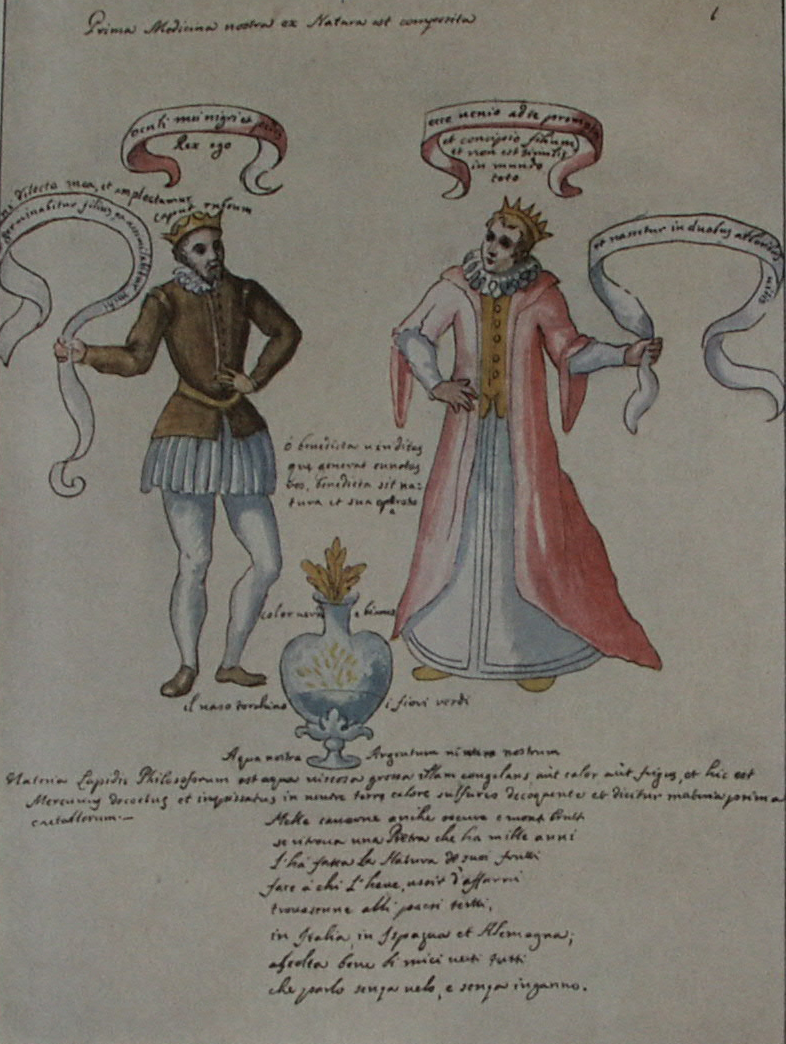 Prima Medicina nostra ex Natura est composita
1
oculi mei nigri et
Rex ego
ecce uenio ad te
et concipio filium
et non est similis
in mundo
toto
dilecta mea, et amplectamur
caput rufum
germinabitur filius assimilabitur mihi
et nascetur in duabus
ó benedicta
que generat cunctas
benedicta sit na:
tura et sua
color
il uaso torchino i fiori verdi
Aqua nostra Argentum nostrum
Materia Lapidis Philosoforum est aqua uiscosa grossa illam congelans aut calor aut frigus, et hic est
Mercurius decoctus et inspissatus in uentre terre calore sulfureo decoquente et dicitur materia prima
metallorum.
Nelle cauerne antiche oscure e mont
se ritroua una Pietra che ha mille anni
L'ha fatta la Natura de suoi frutti
face á chi l'have, uscir d'affanni
trouasenne alli paesi tutti,
in Italia, in Ispagna et Alemagna;
ascolta bene li miei uersi tutti
che parlo senza uelo, e senza inganno.